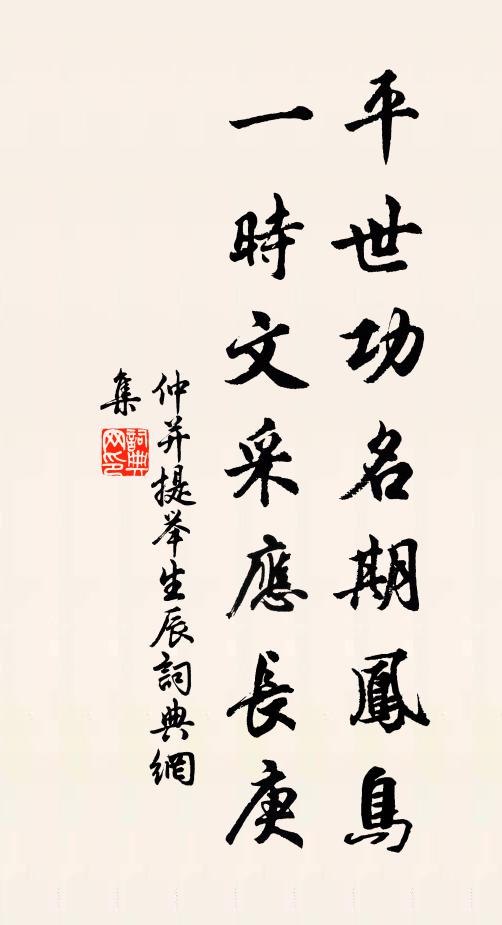 平世功名期鳳鳥
一時文采應長庚
仲并提举生辰詞典網
集
詞典网印